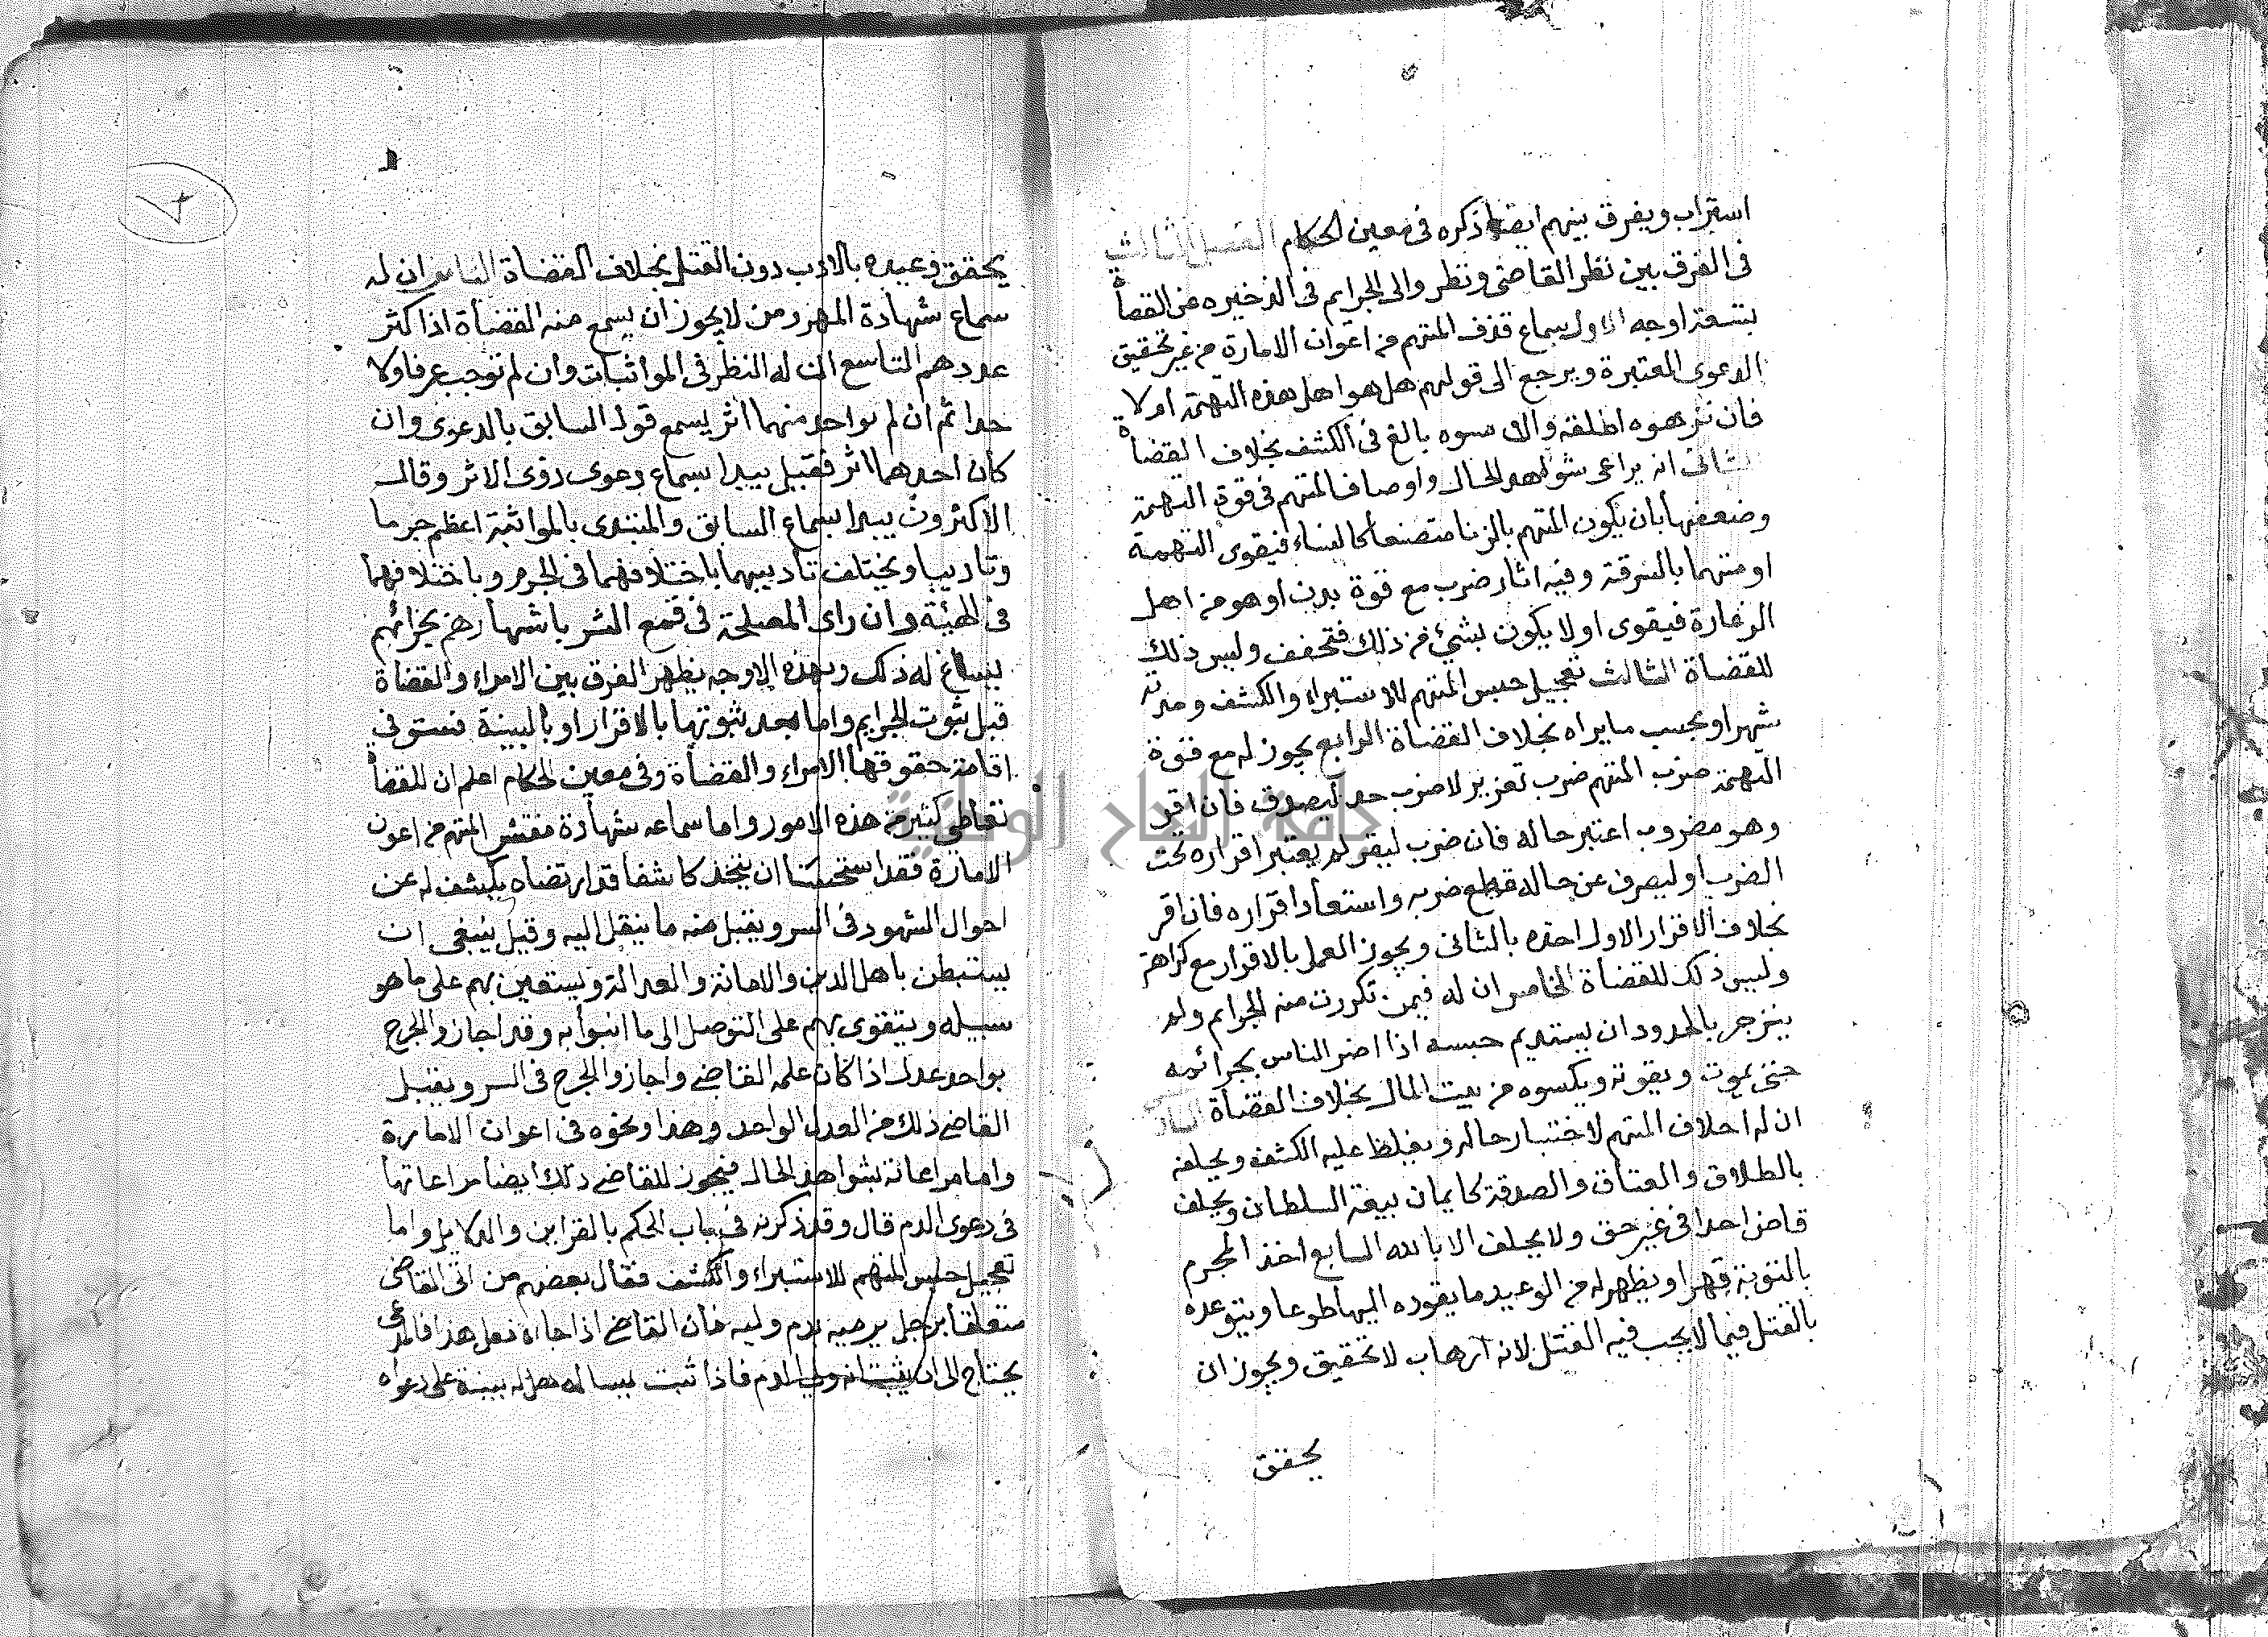 استراب ويفرق بينهم ايضا ذكره في معين الحكام الفصل الثالث
في الفرق بين نظر القاضي ونظر والي الجرايم في الذخيره عن القضاة
بتسعة اوجه الاول سماع قذف المتهم من اعوان الامارة من غير تحقيق
الدعوى المعتبرة ويرجع الى قولهم هل هو اهل هذه التهمة او لا
فان نزهوه اطلقه والا بالغ في الكشف بخلاف القضاة
الثاني انه يراعي شواهد الحال واوصاف المتهم في قوة التهمة
وضعفها بان يكون المتهم بالزنا متصنعا للنساء فيقوى التهمة
او متهما بالسرقة وفيه اثار ضرب مع قوة بدن او هو من اهل
الزعارة فيقوى او لا يكون بشيء من ذلك فتخفف وليس ذلك
للقضاة الثالث تعجيل حبس المتهم للاستبراء والكشف ومدته
شهر او بحسب ما يراه بخلاف القضاة الرابع يجوز له مع قوة
التهمة ضرب المتهم ضرب تعزير لا ضرب حد ليصدق فان اقر
وهو مضروب اعتبر حاله فان ضرب ليقر لم يعتبر اقراره تحت
الضرب او ليصرف عن حاله قطع ضربه واستعاد اقراره فان اقر
بخلاف الاقرار الاول اخذه بالثاني ويجوز العمل بالاقرار مع كراهة
وليس ذلك للقضاة الخامس ان له فيمن تكررت منه الجرايم ولم
ينزجر بالحدود ان يستديم حبسه اذا اضر الناس بجرائمه
حتى يموت ويقوته ويكسوه من بيت المال بخلاف القضاة السادس
ان له احلاف المتهم لاختبار حاله ويغلظ عليه الكشف ويحلفه
بالطلاق والعتاق والصدقة كايمان بيعة السلطان ويحلف
قاض احدا في غير حق ولا يحلف الا بالله السابع اخذ المجرم
بالتوبة قهرا ويظهر له من الوعيد ما يقوده اليها طوعا ويتوعده
بالقتل فيما لا يجب فيه القتل لانه ارهاب لا تحقيق ويجوز ان
يحقق
يحقق وعيده بالادب دون القتل بخلاف القضاة الثامن ان له
سماع شهادة المهر ومن لا يجوز ان يسمع منه القضاة اذا كثر
عددهم التاسع ان له النظر في المواثبات وان لم توجب غرفا ولا
حدا ثم ان لم بواحد منهما اثر يسمع قول السابق بالدعوى وان
كان احدهما اثر فقيل يبدا بسماع دعوى ذوى الاثر وقال
الاكثرون يبدا بسماع السابق والمبتدى بالمواثبة اعظم جرما
وتاديبا ويختلف تاديبهما باختلافهما في الجرم وباختلافهما
في الهيئة وان راى المصلحة في قمع الشر باشهارهم بجرائمهم
يساغ له ذلك وبهذه الاوجه يظهر الفرق بين الامراء والقضاة
قبل ثبوت الجرايم واما بعد ثبوتها بالاقرار او بالبينة فتستوفي
اقامة حقوقها الامراء والقضاة وفي معين الحكام اعلم ان للقضاة
تعاطي كثير من هذه الامور واما سماعه شهادة المتهم من اعوان
الامارة فقد استحسننا ان يتخذ كاشفا قد ارتضاه يكشف له عن
احوال الشهود في السر ويقبل منه ما ينقل اليه وقيل ينبغي ان
يستبطن باهل الدين والامانة والعدالة ويستعين بهم على ما هو
سبيله ويتقوى بهم على التوصل الى ما وقد اجازوا الجرح
بواحد عدل اذا كان علمه القاضي واجازوا الجرح في السر ويقبل
القاضي ذلك من العدل الواحد وهذا ونحوه في اعوان الامارة
واما مراعاته شواهد الحال فيجوز للقاضي ذلك ايضا مراعاتها
في دعوى الدم قال وقد ذكرته في باب الحكم بالقراين والدلايل واما
تعجيل حبس المتهم للاستبراء والكشف فقال بعضهم من اتى القاضي
متعلقا برجل يرميه بدم وليه فان القاضي اذا جاءه فعل هذا
يحتاج الى ان يثبت انه ولي الدم فاذا ثبت يساله هل له بينة على دعواه
٧
جامعة النجاح الوطنية